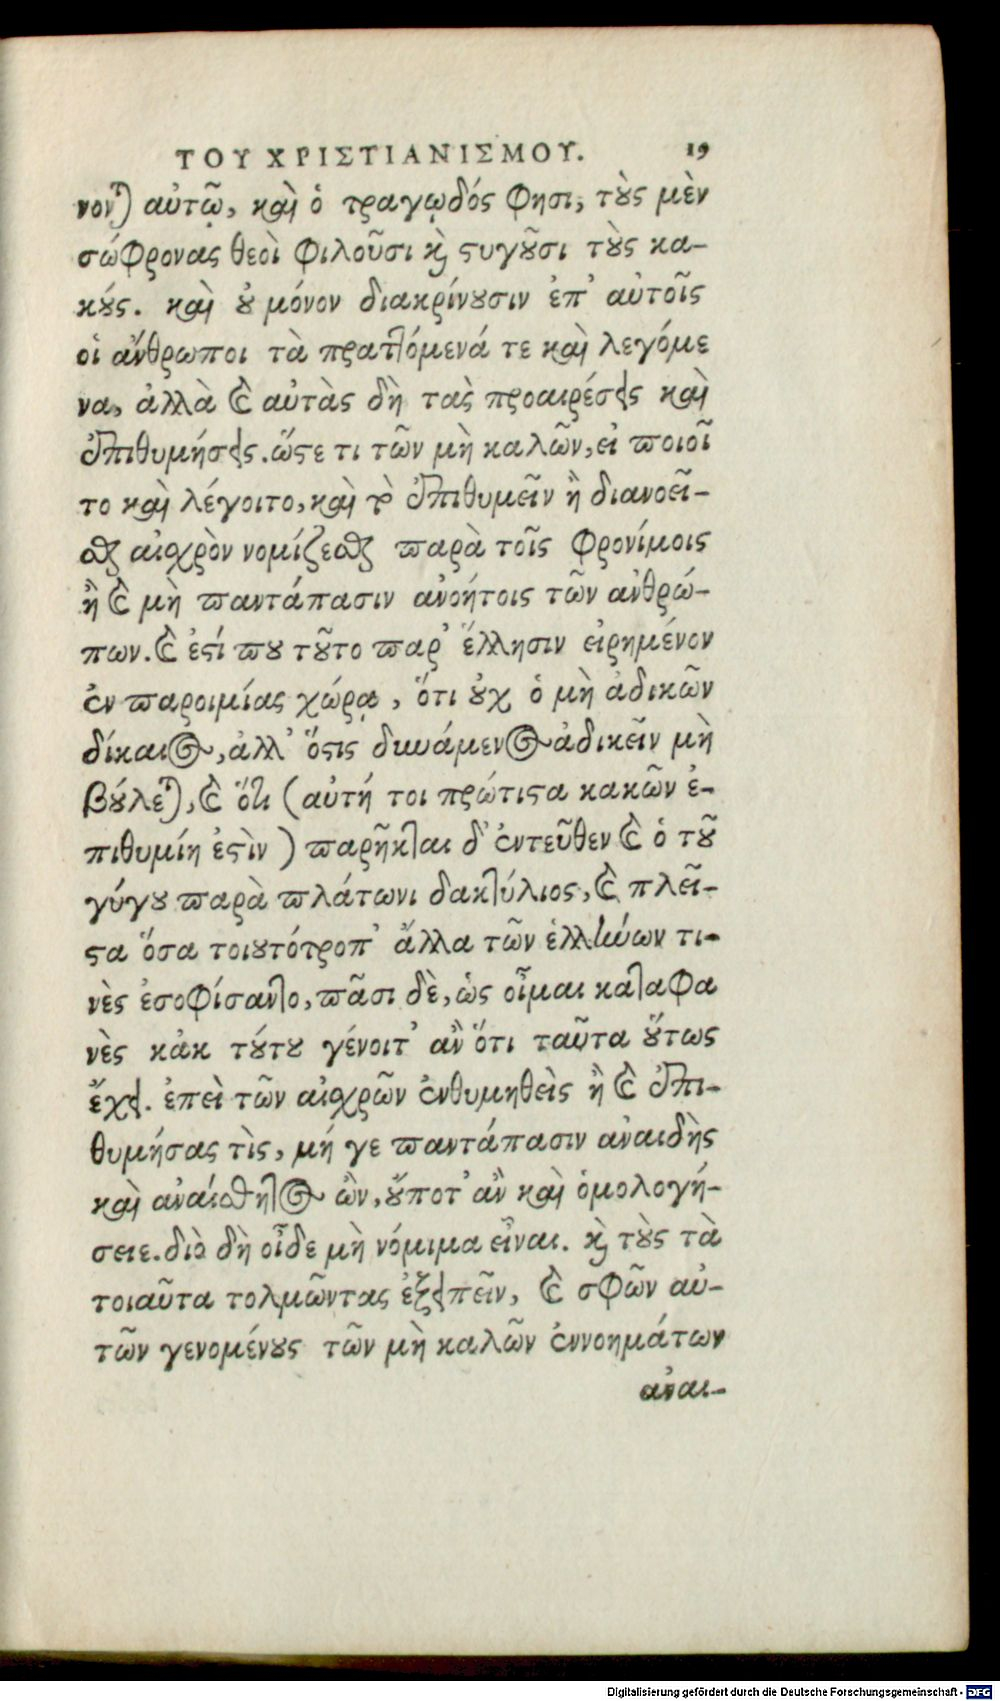 ΤΟΥ ΧΡΙΣΤΙΑΝΙΣΜΟΥ. 19
νονται αὐτῷ, καὶ ὁ τραγῳδός φησι, τοὺς μὲν
σώφρονας θεοὶ φιλοῦσι καὶ στυγοῦσι τοὺς κα-
κούς. καὶ οὐ μόνον διακρίνουσιν ἐπ' αὐτοῖς
οἱ ἄνθρωποι τὰ πραττόμενά τε καὶ λεγόμε
να, ἀλλὰ καὶ αὐτὰς δὴ τὰς προαιρέσεις καὶ
ἐπιθυμήσεις. ὥστε τι τῶν μὴ καλῶν, εἰ ποιοῖ
το καὶ λέγοιτο, καὶ τὸ ἐπιθυμεῖν ἢ διανοεῖ-
σθαι αἰσχρὸν νομίζεσθαι παρὰ τοῖς φρονίμοις
ἢ καὶ μὴ παντάπασιν ἀνοήτοις τῶν ἀνθρώ-
πων. καὶ ἐστί που τοῦτο παρ' ἕλλησιν εἰρημένον
ἐν παροιμίας χώρᾳ, ὅτι οὐχ ὁ μὴ ἀδικῶν
δίκαιος, ἀλλ' ὅστις δυνάμενος ἀδικεῖν μὴ
βούλεται, καὶ ὅτι (αὐτή τοι πρώτιστα κακῶν ἐ-
πιθυμίη ἐστὶν) παρῆκται δ' ἐντεῦθεν καὶ ὁ τοῦ
γύγου παρὰ πλάτωνι δακτύλιος, καὶ πλεῖ-
στα ὅσα τοιουτότροπ' ἄλλα τῶν ἑλλήνων τι-
νὲς ἐσοφίσαντο, πᾶσι δὲ, ὡς οἶμαι καταφα
νὲς κἀκ τούτου γένοιτ' ἂν ὅτι ταῦτα οὕτως
ἔχει. ἐπεὶ τῶν αἰσχρῶν ἐνθυμηθεὶς ἢ καὶ ἐπι-
θυμήσας τὶς, μή γε παντάπασιν ἀναιδὴς
καὶ ἀναίσθητος ὢν, οὔποτ' ἂν καὶ ὁμολογή-
σειε. διὸ δὴ οἶδε μὴ νόμιμα εἶναι. καὶ τοὺς τὰ
τοιαῦτα τολμῶντας ἐξειπεῖν, καὶ σφῶν αὐ-
τῶν γενομένους τῶν μὴ καλῶν ἐννοημάτων
ἀναι-
Digitalisierung gefördert durch die Deutsche Forschungsgemeinschaft - DFG